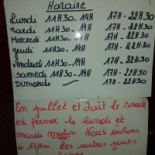 Horaire
Lundi 11H30-14H 17H-22H30
Mardi 11H30-14H 17H-22H30
Mercredi 11H30-14H 17H-22H30
Jeudi 11H30-14H 17H-22H30
Vendredi 11H30-14H 17H-22H30
Samedi 11H30-14H 17H-22H30
Dimanche 17H-22H30
En juillet et août le snack
est fermé le lundi et
mardi matin Nous ouvrons
à 17h00. Les autres jours